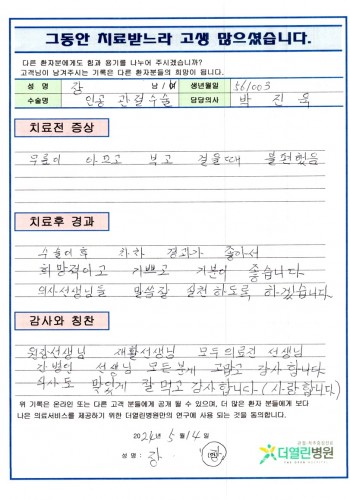 그동안 치료받느라 고생 많으셨습니다.
다른 환자분에게도 힘과 용기를 나누어 주시겠습니까?
고객님이 남겨주시는 기록은 다른 환자분들의 희망이 됩니다.
성 명 장 남 / 여 생년월일 561003
수술명 인공 관절수술 담당의사 박 진 욱
치료전 증상
무릎이 아프고 붓고 걸을때 불편했음
치료후 경과
수술이후 차차 결과가 좋아서
희망적이고 기쁘고 기분이 좋습니다
의사선생님들 말씀잘 실천하도록 하겠습니다.
감사와 칭찬
원장선생님 재활선생님 모두의료진 선생님
간병인 선생님 모든분께 고맙고 감사합니다
식사도 맛있게 잘 먹고 감사합니다 (사랑합니다)
위 기록은 온라인 또는 다른 고객 분들에게 공개 될 수 있으며, 더 많은 환자 분들에게 보다
나은 의료서비스를 제공하기 위한 더열린병원만의 연구에 사용 되는 것을 동의합니다.
2024년 5월 14일
성 명 : 장 (인)
더열린병원